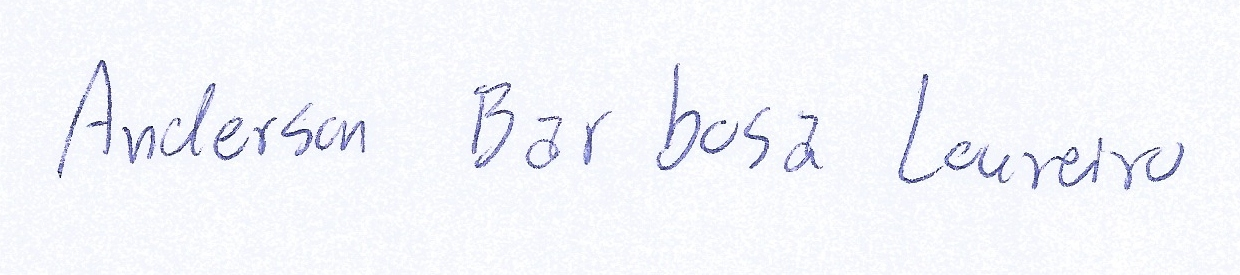 Anderson Barbosa Loureiro